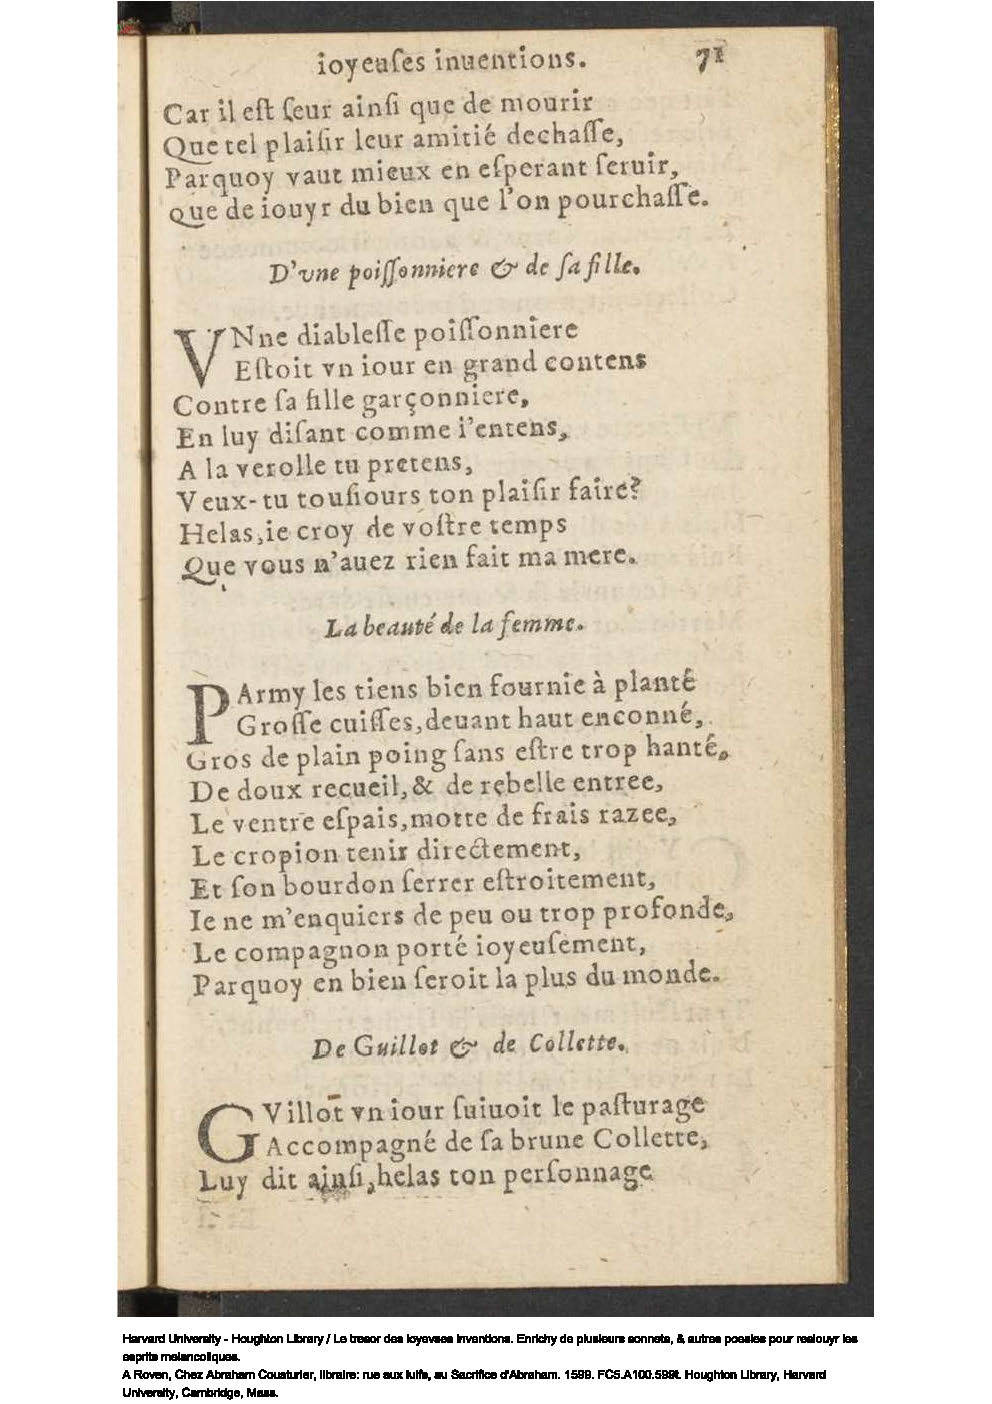 ioyeuſes inuentions. 71
Car il eſt ſeur ainſi que de mourir
Que tel plaiſir leur amitié dechaſſe,
Parquoy vaut mieux en eſperant ſeruir,
Que de iouyr du bien que l'on pourchaſſe.
D'vne poiſſonniere & de ſa fille.
VNne diableſſe poiſſonniere
Eſtoit vn iour en grand contens
Contre ſa fille garçonniere,
En luy diſant comme i'entens,
A la verolle tu pretens,
Veux-tu touſiours ton plaiſir faire?
Helas, ie croy de voſtre temps
Que vous n'auez rien fait ma mere.
La beauté de la femme.
PArmy les tiens bien fournie à planté
Groſſe cuiſſes, deuant haut enconné,
Gros de plain poing ſans eſtre trop hanté,
De doux recueil, & de rebelle entree,
Le ventre eſpais, motte de frais razee,
Le cropion tenir directement,
Et ſon bourdon ſerrer eſtroitement,
Ie ne m'enquiers de peu ou trop profonde,
Le compagnon porté ioyeuſement,
Parquoy en bien ſeroit la plus du monde.
De Guillot & de Collette.
GVillot vn iour ſuiuoit le paſturage
Accompagné de ſa brune Collette,
Luy dit ainſi, helas ton perſonnage
Harvard University - Houghton Library / Le tresor des ioyevses inventions. Enrichy de plusieurs sonnets, & autres poesies pour resiouyr les
esprits melancoliques.
A Roven, Chez Abraham Cousturier, libraire: rue aux Iuifs, au Sacrifice d'Abraham. 1599. FC5.A100.599t. Houghton Library, Harvard
University, Cambridge, Mass.